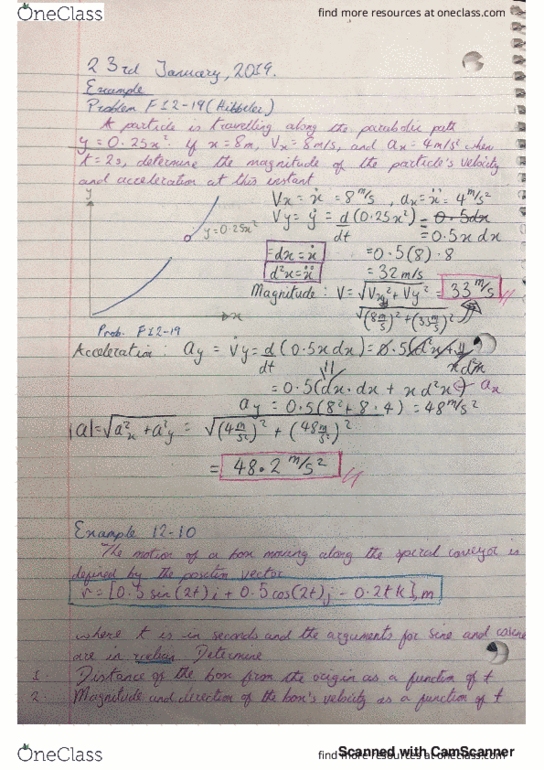 OneClass
find more resources at oneclass.com
23rd January, 2019.
Example
Problem F12-19 (Hibbeler)
A particle is travelling along the parabolic path
y = 0.25x². if x = 8m, Vx = 8m/s, and ax = 4m/s² when
t = 2s, determine the magnitude of the particle's velocity
and acceleration at this instant
y
y = 0.25x²
x
Prob. F12-19
Vx = ẋ = 8 m/s, dx = ẍ = 4 m/s²
Vy = ẏ = d/dt (0.25x²) = 0.5dx
= 0.5x dx
= dx = ẋ
= 0.5(8)·8
d²x = ẍ
= 32 m/s
Magnitude: V = √Vx² + Vy² = 33 m/s
√(8 m/s)² + (33 m/s)²
Acceleration: ay = V̇y = d/dt (0.5x dx) = 0.5(d²x + y
x d²x
= 0.5(dx·dx + x d²x) ax
ay = 0.5(8² + 8·4) = 48 m/s²
|a| = √a²x + a²y = √(4 m/s²)² + (48 m/s²)²
= 48.2 m/s²
Example 12-10
The motion of a box moving along the spiral conveyor is
defined by the position vector
r = [0.5 sin(2t)i + 0.5 cos(2t)j - 0.2t k], m
where t is in seconds and the arguments for sine and cosine
are in radian. Determine
1. Distance of the box from the origin as a function of t
2. Magnitude and direction of the box's velocity as a function of t
OneClass
find more resources at oneclass.com
Scanned with CamScanner